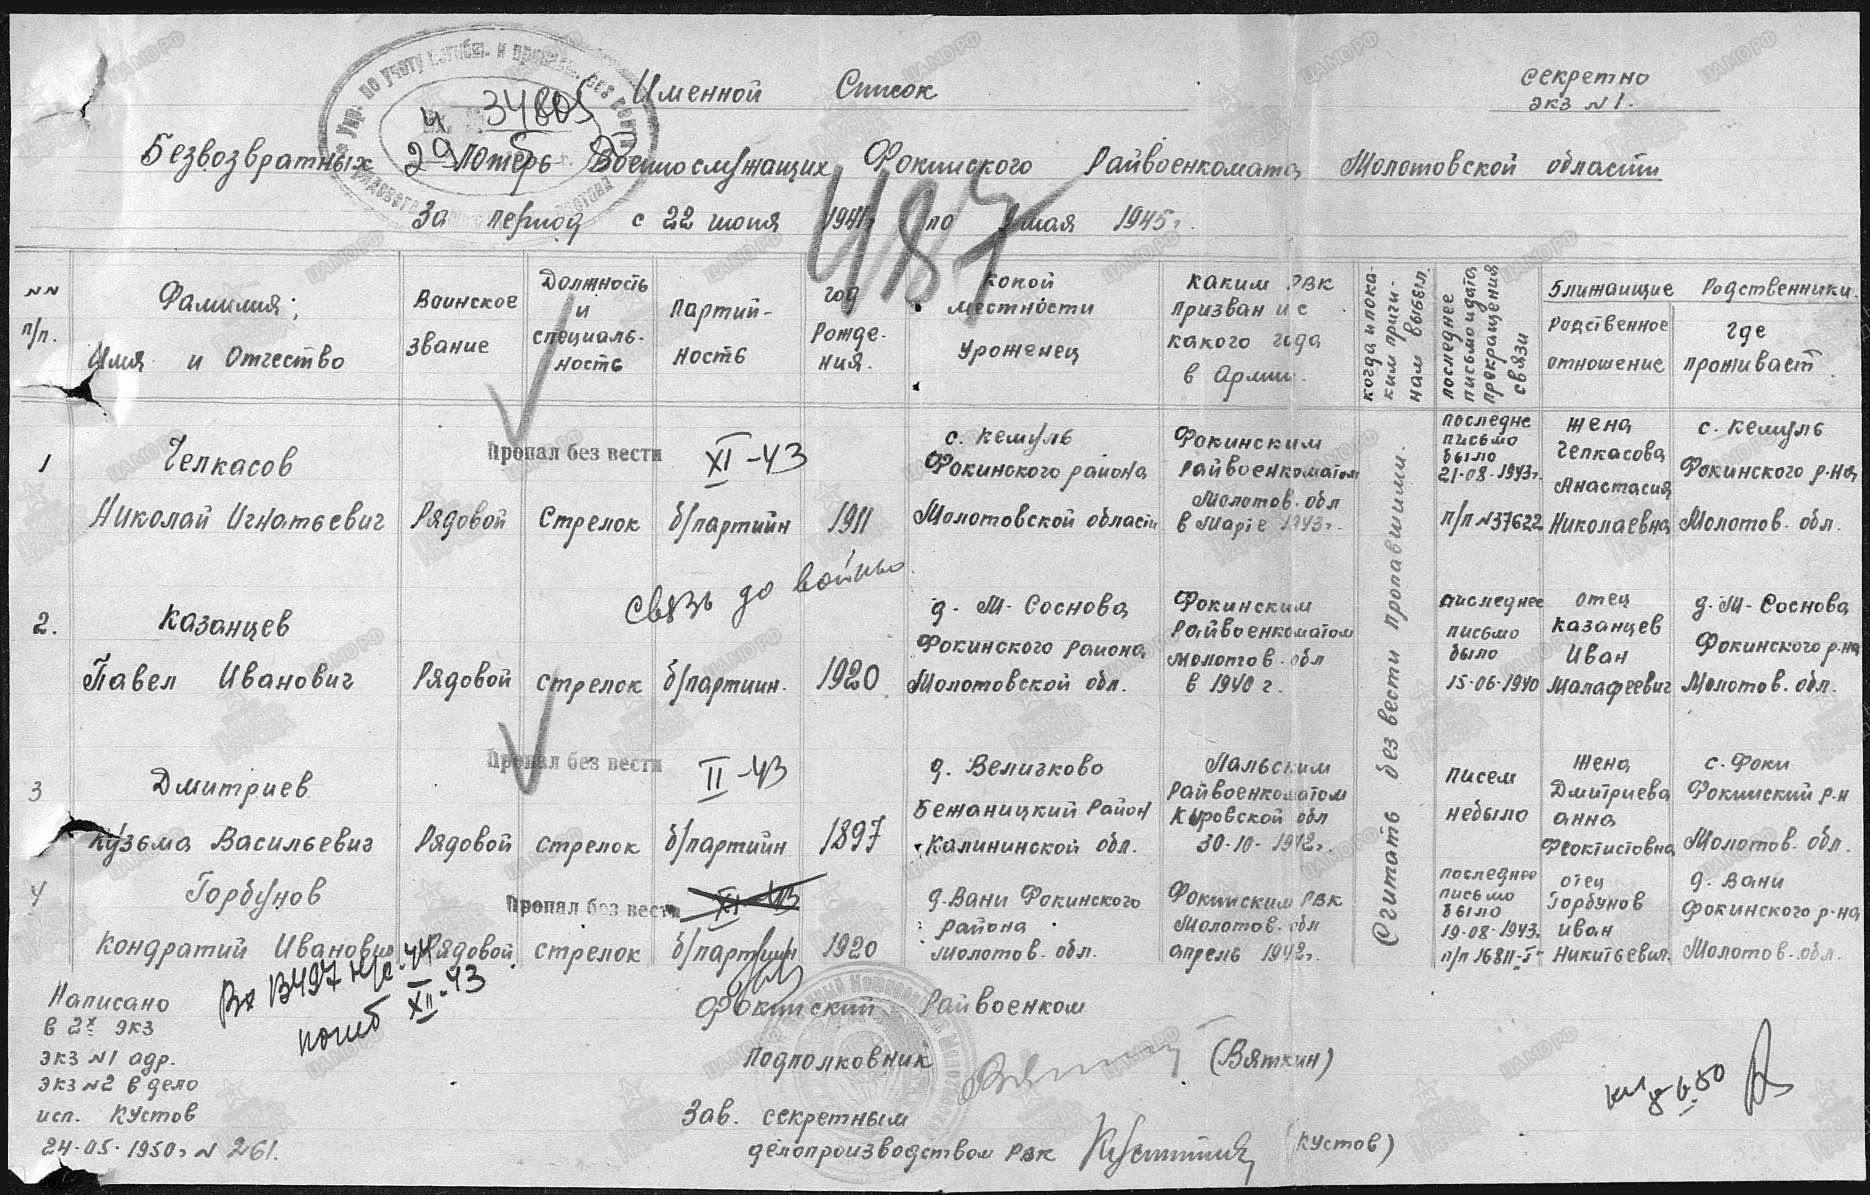 Секретно
экз №1.
Именной Список
Безвозвратных Потерь Военнослужащих Фокинского Райвоенкомата Молотовской области
За период с 22 июня 1941г по 9 мая 1945г.
Упр. по учету погибш. и пропавш. без вести
34805
29
487
№№ п/п.
Фамилия;
Имя и Отчество
Воинское
звание
Должность
и
специаль-
ность
Партий-
ность
год
Рожде-
ния.
Какой
местности
Уроженец
Каким РВК
призван и с
какого года
в Армии.
когда и по ка-
ким причи-
нам выбыл.
последнее
письмо и дата
прекращения
связи
Ближайшие Родственники
Родственное
отношение
где
проживает
1
Чепкасов
Николай Игнатьевич
Рядовой
Стрелок
Пропал без вести
XI-43
б/партийн
1911
с. Кемуль
Фокинского района
Молотовской области
Фокинским
Райвоенкоматом
Молотов. обл
в Марте 1943г.
Считать без вести пропавшими.
последне
письмо
было
21-08-1943г.
п/п №37622
жена
Чепкасова
Анастасия
Николаевна
с. Кемуль
Фокинского р-на
Молотов. обл.
связь до войны
2.
Казанцев
Павел Иванович
Рядовой
стрелок
б/партиин.
1920
д. М-Соснова
Фокинского района
Молотовской обл.
Фокинским
Райвоенкоматом
Молотов. обл
в 1940 г.
последнее
письмо
было
15-06-1940
отец
Казанцев
Иван
Малафеевич
д. М-Соснова
Фокинского р-на
Молотов. обл.
3
Дмитриев
Кузьма Васильевич
Рядовой
стрелок
Пропал без вести
II-43
б/партийн
1897
д. Величково
Бежаницкий Район
Калининской обл.
Лальским
Райвоенкоматом
Кировской обл
30-10-1942г.
писем
небыло
жена
Дмитриева
анна
Феоктистовна
с. Фоки
Фокинский р-н
Молотов. обл.
4
Горбунов
Кондратий Иванович
Рядовой
стрелок
Пропал без вести
XI-43
б/партиин
1920
д. Вани Фокинского
района
Молотов. обл.
Фокинским РВК
Молотов. обл
апрель 1942г.
последнее
письмо
было
19-08-1943г.
п/п 16811-Г
отец
Горбунов
иван
Никитьевич
д. Вани
Фокинского р-на
Молотов. обл.
Вх В497
погиб XII-43
Написано
в 2х экз
экз №1 адр.
экз №2 в дело
исп. Кустов
24-05-1950г №261.
Фокинский Райвоенком
Подполковник (Вяткин)
Зав. секретным
делопроизводством РВК (Кустов)